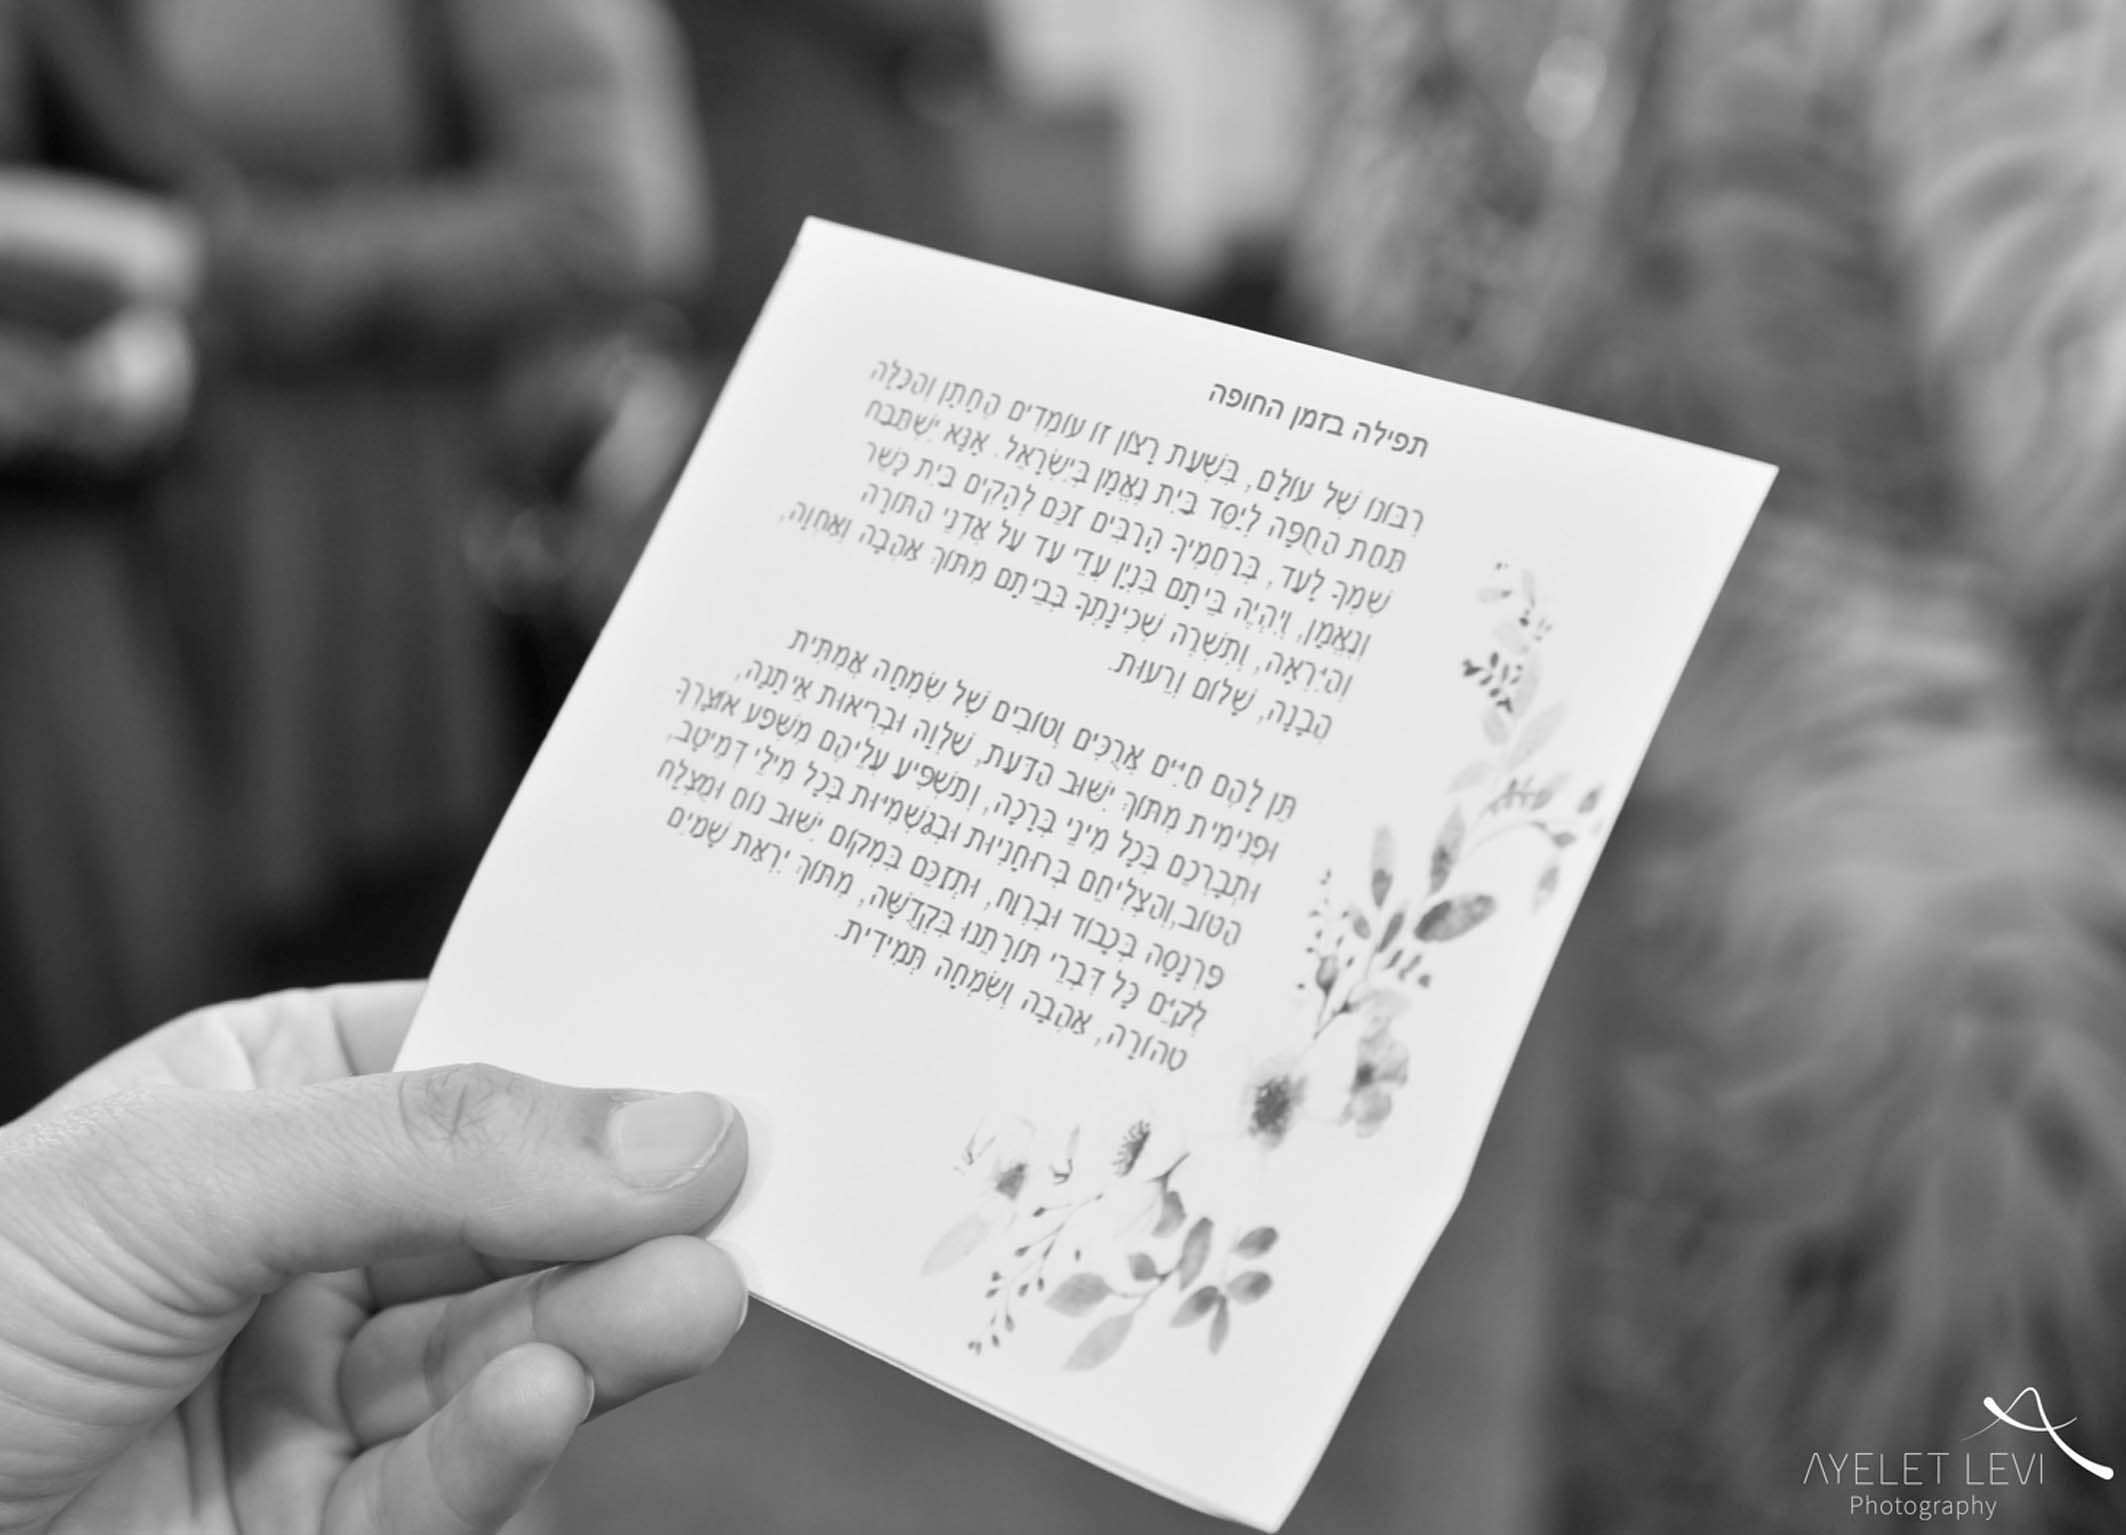 תפילה בזמן החופה
רִבּוֹנוֹ שֶׁל עוֹלָם, בִּשְׁעַת רָצוֹן זוֹ עוֹמְדִים הֶחָתָן וְהַכַּלָּה
תַּחַת הַחֻפָּה לְיַסֵּד בַּיִת נֶאֱמָן בְּיִשְׂרָאֵל. אָנָּא יִשְׁתַּבַּח
שִׁמְךָ לָעַד, בְּרַחֲמֶיךָ הָרַבִּים זַכֵּם לְהָקִים בַּיִת כָּשֵׁר
וְנֶאֱמָן, וְיִהְיֶה בֵּיתָם בִּנְיַן עֲדֵי עַד עַל אַדְנֵי הַתּוֹרָה
וְהַיִּרְאָה, וְתַשְׁרֶה שְׁכִינָתְךָ בְּבֵיתָם מִתּוֹךְ אַהֲבָה וְאַחְוָה,
הֲבָנָה, שָׁלוֹם וְרֵעוּת.
תֵּן לָהֶם חַיִּים אֲרֻכִּים וְטוֹבִים שֶׁל שִׂמְחָה אֲמִתִּית
וּפְנִימִית מִתּוֹךְ יִשּׁוּב הַדַּעַת, שַׁלְוָה וּבְרִיאוּת אֵיתָנָה,
וּתְבָרְכֵם בְּכָל מִינֵי בְּרָכָה, וְתַשְׁפִּיעַ עֲלֵיהֶם מִשֶּׁפַע אוֹצָרְךָ
הַטּוֹב,וְהַצְלִיחֵם בְּרוּחָנִיּוּת וּבְגַשְׁמִיּוּת בְּכָל מִילֵי דְּמֵיטַב,
פַּרְנָסָה בְּכָבוֹד וּבְרֶוַח, וּתְזַכֵּם בִּמְקוֹם יִשּׁוּב נוֹחַ וּמֻצְלָח
לְקַיֵּם כָּל דִּבְרֵי תּוֹרָתֵנוּ בִּקְדֻשָּׁה, מִתּוֹךְ יִרְאַת שָׁמַיִם
טְהוֹרָה, אַהֲבָה וְשִׂמְחָה תְּמִידִית.
AYELET LEVI
Photography